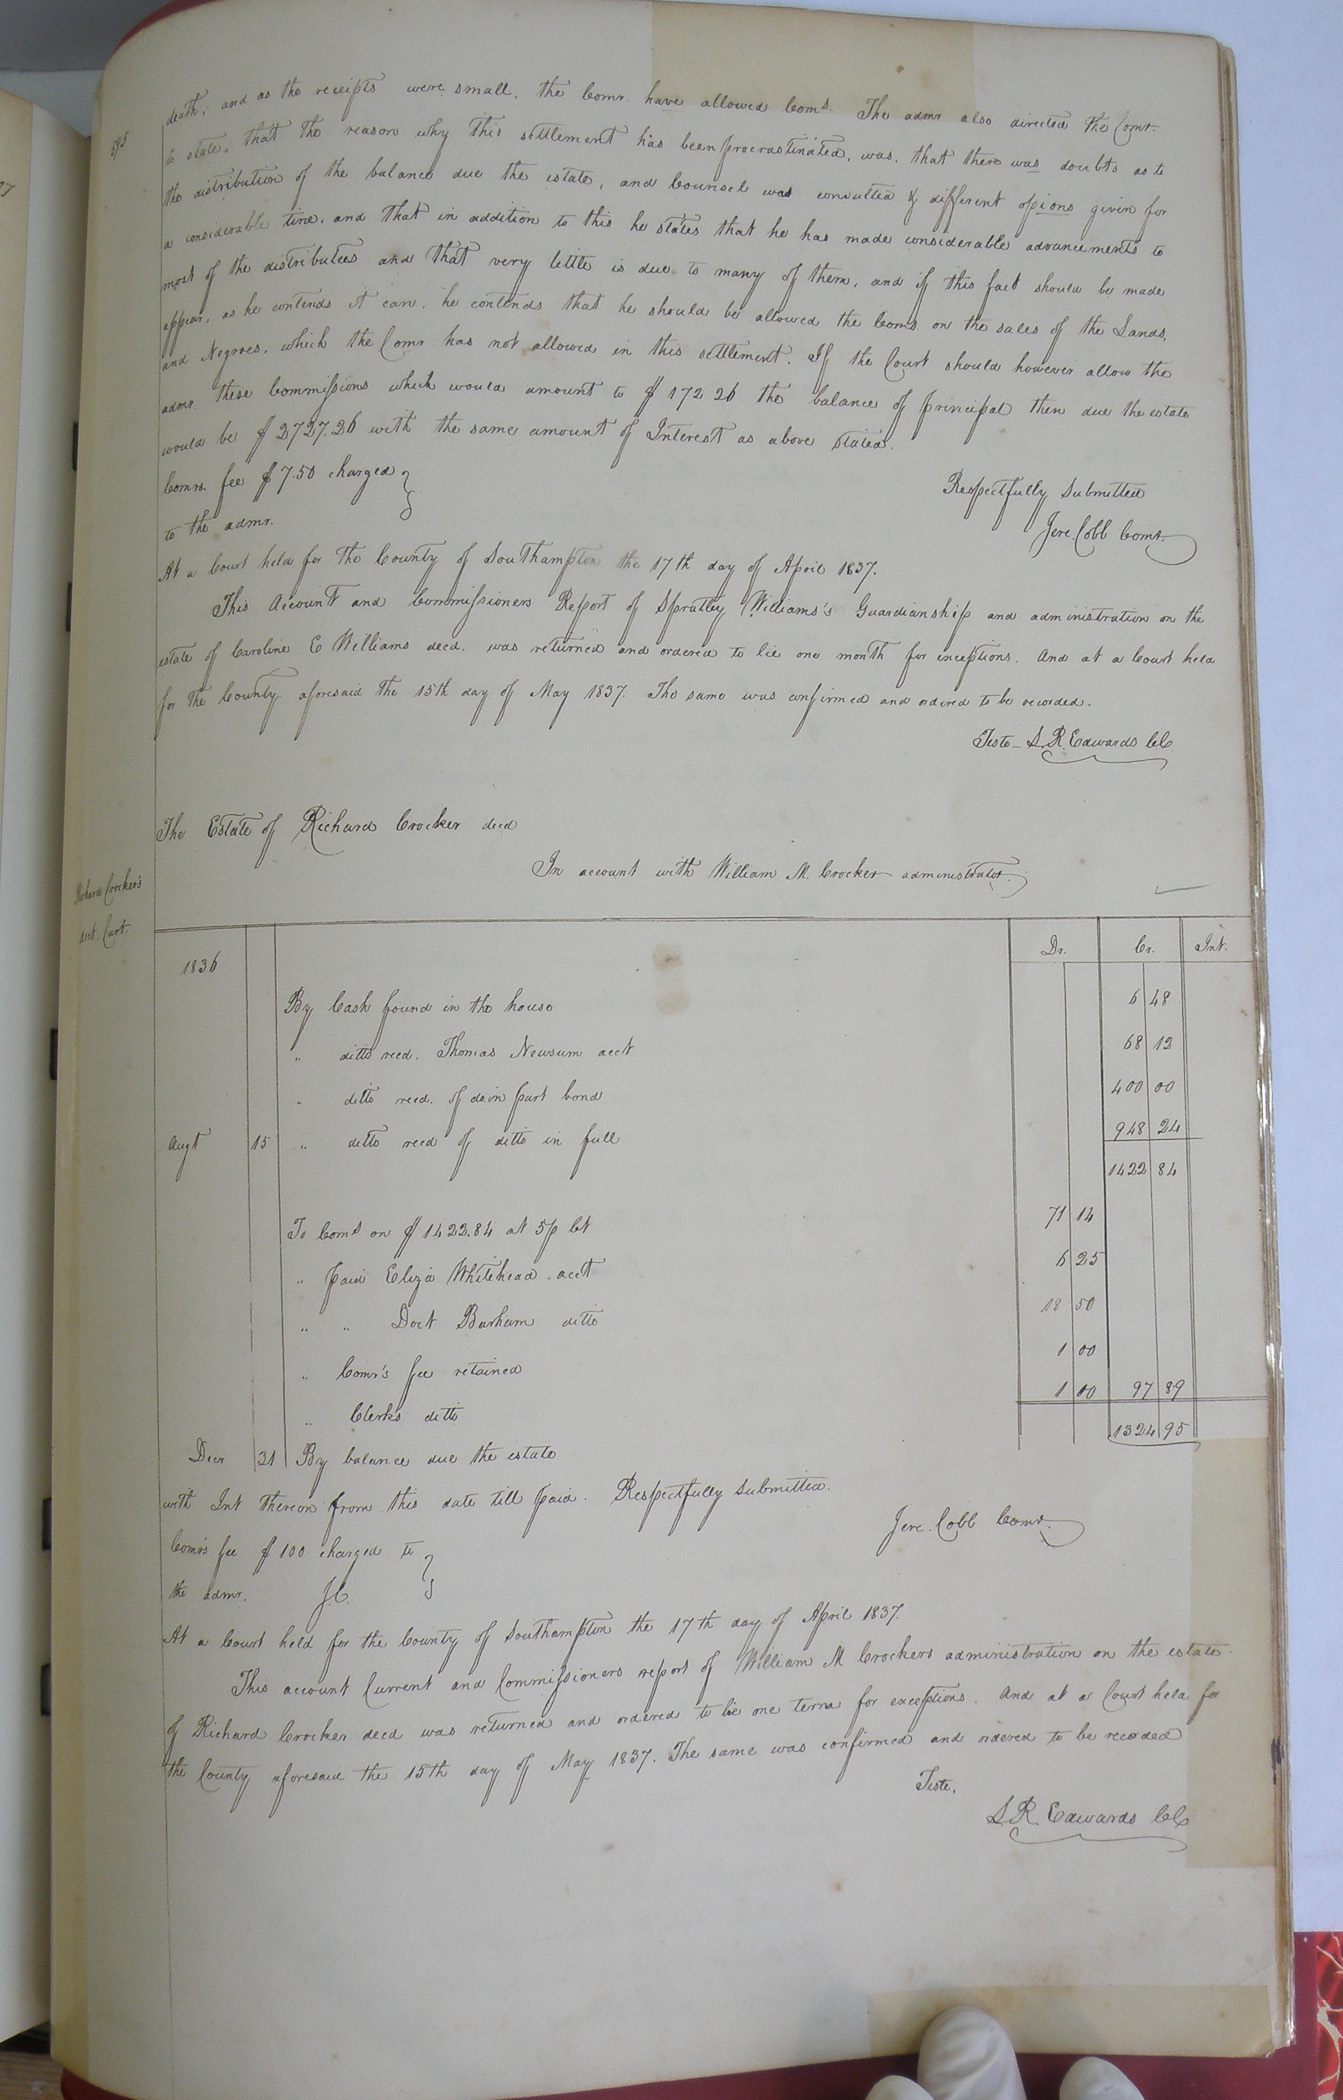 death; and as the receipts were small, the Comr. have allowed Coms. The admr also directed the Comr.
to state, that the reason why this settlement has been procrastinated, was, that there was doubts as to
the distribution of the balance due the estate, and Counsel was consulted & different opions given for
a considerable time, and that in addition to this he states that he has made considerable advancements to
most of the distributees and that very little is due to many of them, and if this fact should be made
appear, as he contends it can, he contends that he should be allowed the Coms. on the sales of the Lands,
and Negroes, which the Comr has not allowed in this settlement. If the Court should however allow the
admr. these Commissions which would amount to $172 26 the balance of principal then due the estate
would be $2727.26 with the same amount of Interest as above stated.
Comrs. fee $7.50 charged }
to the admr.
Respectfully Submitted
Jere. Cobb Comr.
At a Court held for the County of Southampton the 17th day of April 1837.
This Account and Commissioners Report of Spratley Williams's Guardianship and administration on the
estate of Caroline E Williams decd. was returned and ordered to lie one month for inceptions. And at a Court held
for the County aforesaid the 15th day of May 1837. The same was confirmed and ordered to be recorded.
Teste - L R. Edwards CC
The Estate of Richard Crocker decd
In account with William M. Crocker administrator.
Richard Crockers
acct. Curt.
Dr. Cr. Int.
1836
By Cash found in the house 6 48
" ditto recd. Thomas Newsum acct 68 12
" ditto recd. of do. in part bond 400 00
Augt 15 " ditto recd of ditto in full 948 24
1422 84
To Coms on $1422.84 at 5 p Ct 71 14
" paid Eliza Whitehead acct 6 25
" " Doct Barham ditto 18 50
" Comr's fee retained 1 00
" Clerks ditto 1 00 97 89
Decr 31 By balance due the estate 1324 95
with Int thereon from this date till paid. Respectfully Submitted.
Jere. Cobb Comr.
Comrs fee $1 00 charged to }
the admr. J C.
At a Court held for the County of Southampton the 17th day of April 1837.
This account Current and Commissioners report of William M Crockers administration on the estate
of Richard Crocker decd was returned and ordered to lie one term for exceptions. And at a Court held for
the County aforesaid the 15th day of May 1837. The same was confirmed and ordered to be recorded
Teste.
L R. Edwards CC